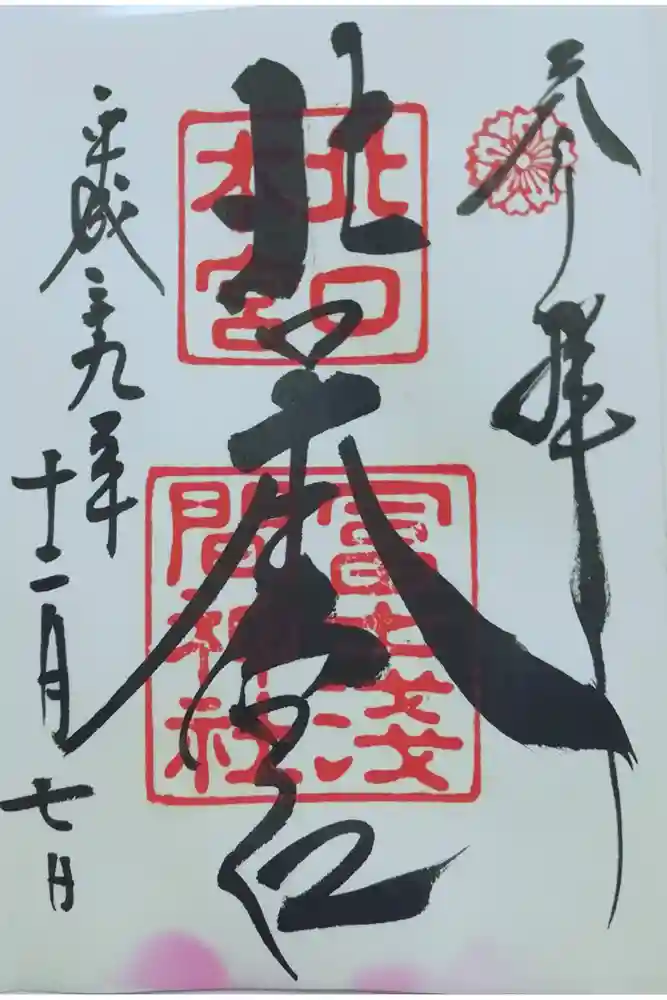 奉拝
北口本宮
北口
本宮
冨士浅
間神社
平成二十九年
十二月七日